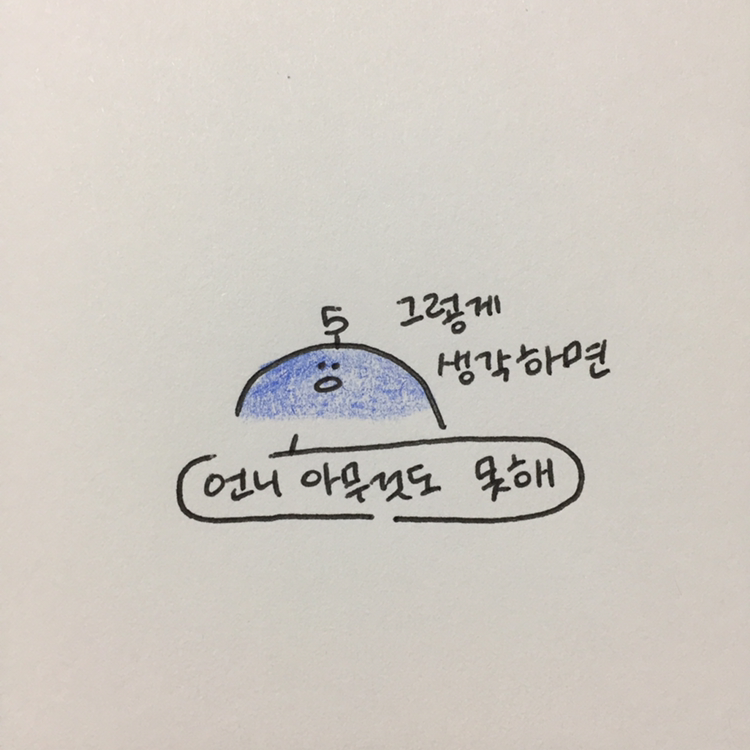 5
그렇게
생각하면
언니 아무것도 못해